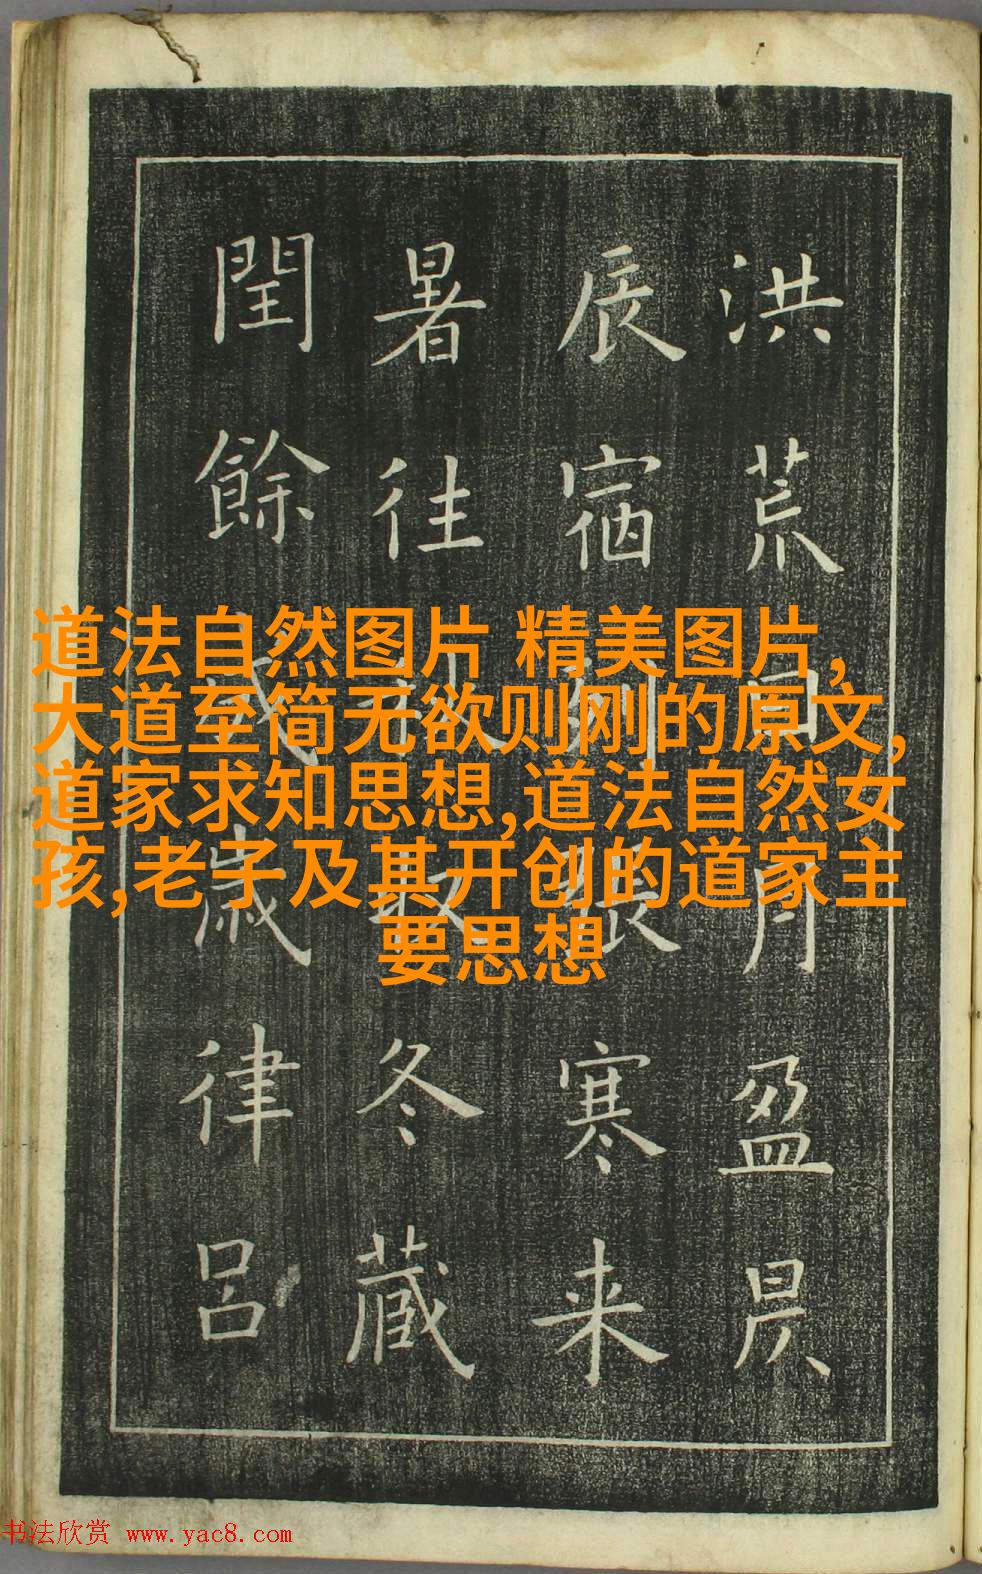 洪荒日月盈昃
辰宿列張寒来
暑往秋收冬藏
閏餘成歲律呂
道法自然图片 精美图片,
大道至简无欲则刚的原文,
道家求知思想,道法自然女
孩,老子及其开创的道家主
要思想
书法欣赏 www.yac8.com